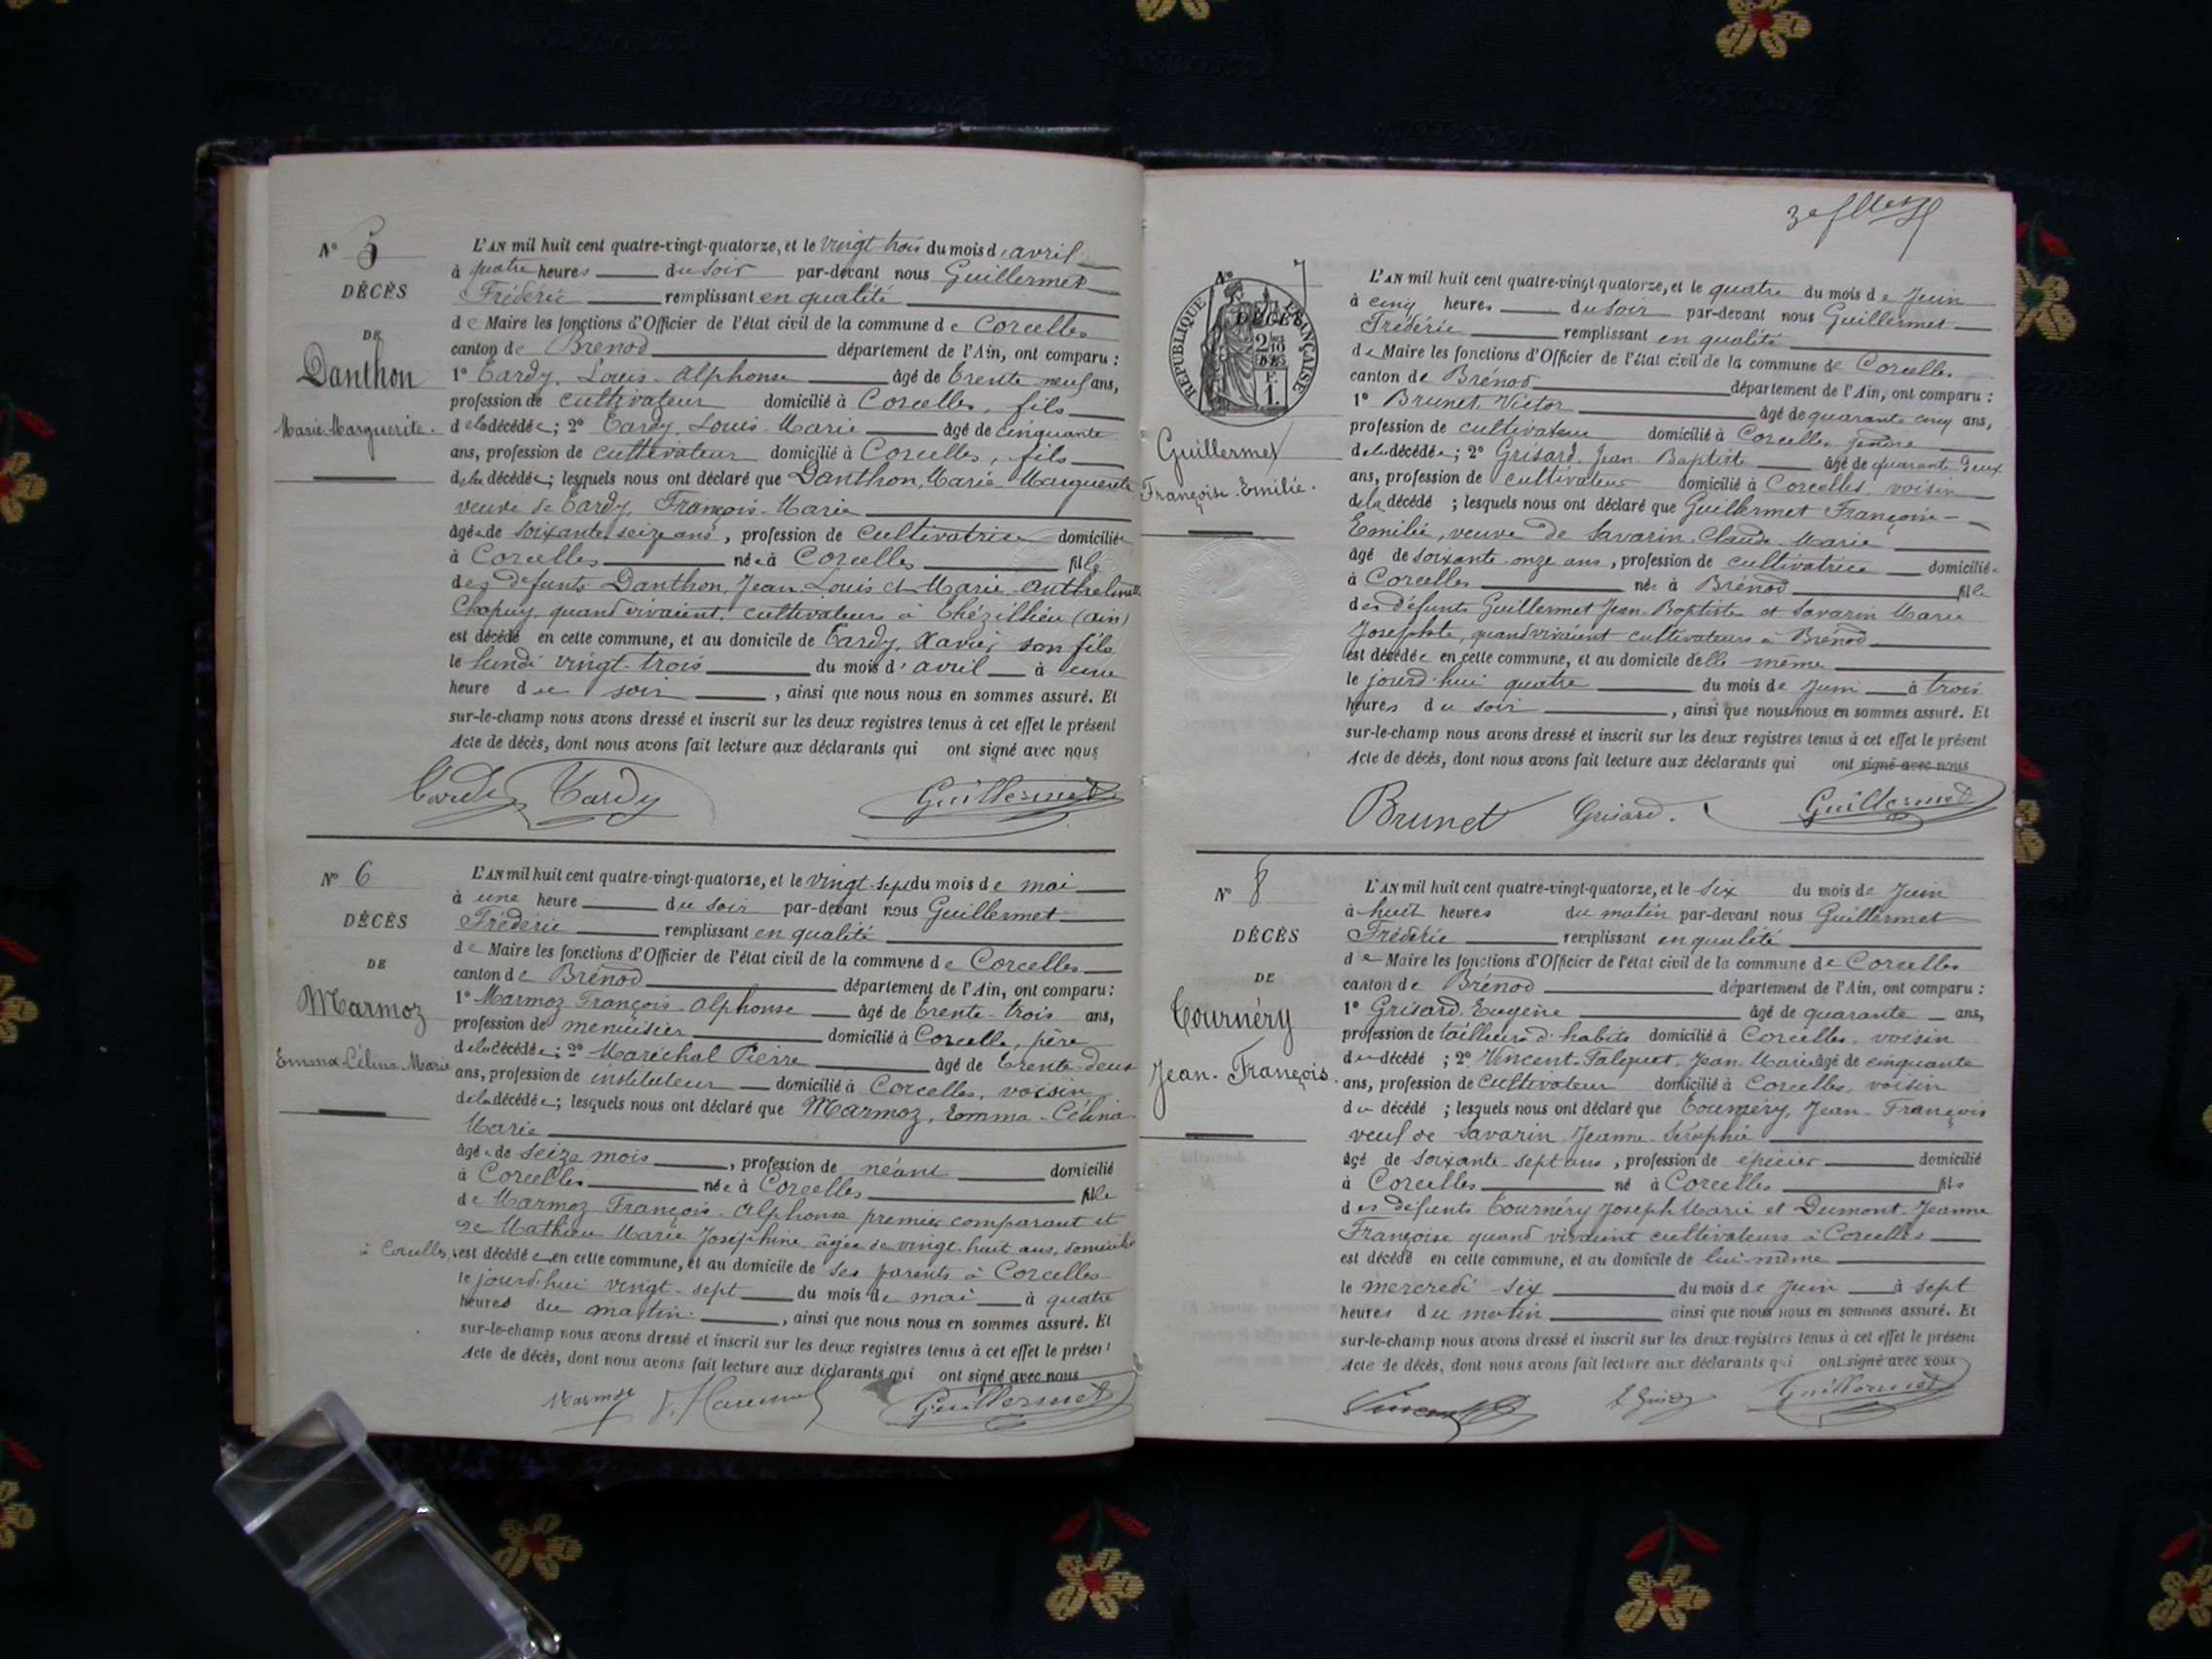 N° 5
DÉCÈS
DE
Danthon
Marie-Marguerite.
L'AN mil huit cent quatre-vingt-quatorze, et le vingt trois du mois d'avril
à quatre heures du soir par-devant nous Guillermet
Frédéric remplissant en qualité
de Maire les fonctions d'Officier de l'état civil de la commune de Corcelles
canton de Brenod département de l'Ain, ont comparu :
1° Tardy, Louis-Alphonse âgé de trente-neuf ans,
profession de cultivateur domicilié à Corcelles, fils
de la décédée ; 2° Tardy, Louis-Marie âgé de cinquante
ans, profession de cultivateur domicilié à Corcelles, fils
de la décédée ; lesquels nous ont déclaré que Danthon, Marie-Marguerite
veuve de Tardy, François-Marie
âgée de soixante-seize ans, profession de cultivatrice domiciliée
à Corcelles née à Corcelles fille
des défunts Danthon, Jean-Louis et Marie-Anthelmette
Chapuy, quand vivaient cultivateurs à Thézillieu (Ain)
est décédé en cette commune, et au domicile de Tardy, Xavier son fils
le lundi vingt-trois du mois d'avril à une
heure du soir, ainsi que nous nous en sommes assuré. Et
sur-le-champ nous avons dressé et inscrit sur les deux registres tenus à cet effet le présent
Acte de décès, dont nous avons fait lecture aux déclarants qui ont signé avec nous
Tardy Guillermet
N° 6
DÉCÈS
DE
Marmoz
Emma-Célina-Marie
L'AN mil huit cent quatre-vingt-quatorze, et le vingt-sept du mois de mai
à une heure du soir par-devant nous Guillermet
Frédéric remplissant en qualité
de Maire les fonctions d'Officier de l'état civil de la commune de Corcelles
canton de Brénod département de l'Ain, ont comparu :
1° Marmoz François-Alphonse âgé de trente-trois ans,
profession de menuisier domicilié à Corcelle, père
de la décédée ; 2° Maréchal Pierre âgé de trente-deux
ans, profession de instituteur domicilié à Corcelles, voisin
de la décédée ; lesquels nous ont déclaré que Marmoz, Emma-Célina
Marie
âgée de seize mois, profession de néant domicilié
à Corcelles née à Corcelles fille
de Marmoz François-Alphonse premier comparant et
de Mathieu Marie Joséphine âgée de vingt-huit ans, domiciliée
à Corcelles, est décédée en cette commune, et au domicile de ses parents à Corcelles
le jourd'hui vingt-sept du mois de mai à quatre
heures du matin, ainsi que nous nous en sommes assuré. Et
sur-le-champ nous avons dressé et inscrit sur les deux registres tenus à cet effet le présent
Acte de décès, dont nous avons fait lecture aux déclarants qui ont signé avec nous
Marmoz Guillermet
N° 7
RÉPUBLIQUE FRANÇAISE
DÉCÈS
2/10 EN SUS
F. 1.
Guillermet
Françoise-Emilie.
L'AN mil huit cent quatre-vingt quatorze, et le quatre du mois de Juin
à cinq heures du soir par-devant nous Guillermet
Frédéric remplissant en qualité
de Maire les fonctions d'Officier de l'état civil de la commune de Corcelles
canton de Brénod département de l'Ain, ont comparu :
1° Brunet, Victor âgé de quarante cinq ans,
profession de cultivateur domicilié à Corcelles gendre
de la décédée ; 2° Grisard, Jean-Baptiste âgé de quarante deux
ans, profession de cultivateur domicilié à Corcelles, voisin
de la décédé ; lesquels nous ont déclaré que Guillermet Françoise-
Emilie, veuve de Savarin Claude-Marie
âgé de soixante-onze ans, profession de cultivatrice domiciliée
à Corcelles née à Brénod fille
des défunts Guillermet Jean-Baptiste et Savarin Marie
Josephte, quand vivaient cultivateurs à Brénod
est décédée en cette commune, et au domicile d'elle même
le jourd'hui quatre du mois de Juin à trois
heures du soir, ainsi que nous nous en sommes assuré. Et
sur-le-champ nous avons dressé et inscrit sur les deux registres tenus à cet effet le présent
Acte de décès, dont nous avons fait lecture aux déclarants qui ont signé avec nous
Brunet Grisard. Guillermet
N° 8
DÉCÈS
DE
Tournéry
Jean-François.
L'AN mil huit cent quatre-vingt-quatorze, et le six du mois de Juin
à huit heures du matin par-devant nous Guillermet
Frédéric remplissant en qualité
de Maire les fonctions d'Officier de l'état civil de la commune de Corcelles
canton de Brénod département de l'Ain, ont comparu :
1° Grisard, Eugène âgé de quarante ans,
profession de tailleurs d'habits domicilié à Corcelles, voisin
du décédé ; 2° Vincent-Falquet, Jean-Marie âgé de cinquante
ans, profession de cultivateur domicilié à Corcelles, voisin
du décédé ; lesquels nous ont déclaré que Tournéry, Jean-François
veuf de Savarin Jeanne-Séraphie
âgé de soixante-sept ans, profession de épicier domicilié
à Corcelles né à Corcelles fils
des défunts Tournéry Joseph Marie et Dumont Jeanne
Françoise quand vivaient cultivateurs à Corcelles
est décédé en cette commune, et au domicile de lui-même
le mercredi six du mois de Juin à sept
heures du matin ainsi que nous nous en sommes assuré. Et
sur-le-champ nous avons dressé et inscrit sur les deux registres tenus à cet effet le présent
Acte de décès, dont nous avons fait lecture aux déclarants qui ont signé avec nous
Guillermet